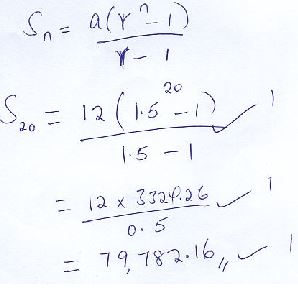 Sₙ = a(rⁿ - 1)
r - 1
S₂₀ = 12(1.5²⁰ - 1) ✓ 1
1.5 - 1
= 12 x 3324.26 ✓ 1
0.5
= 79,782.16,, ✓ 1